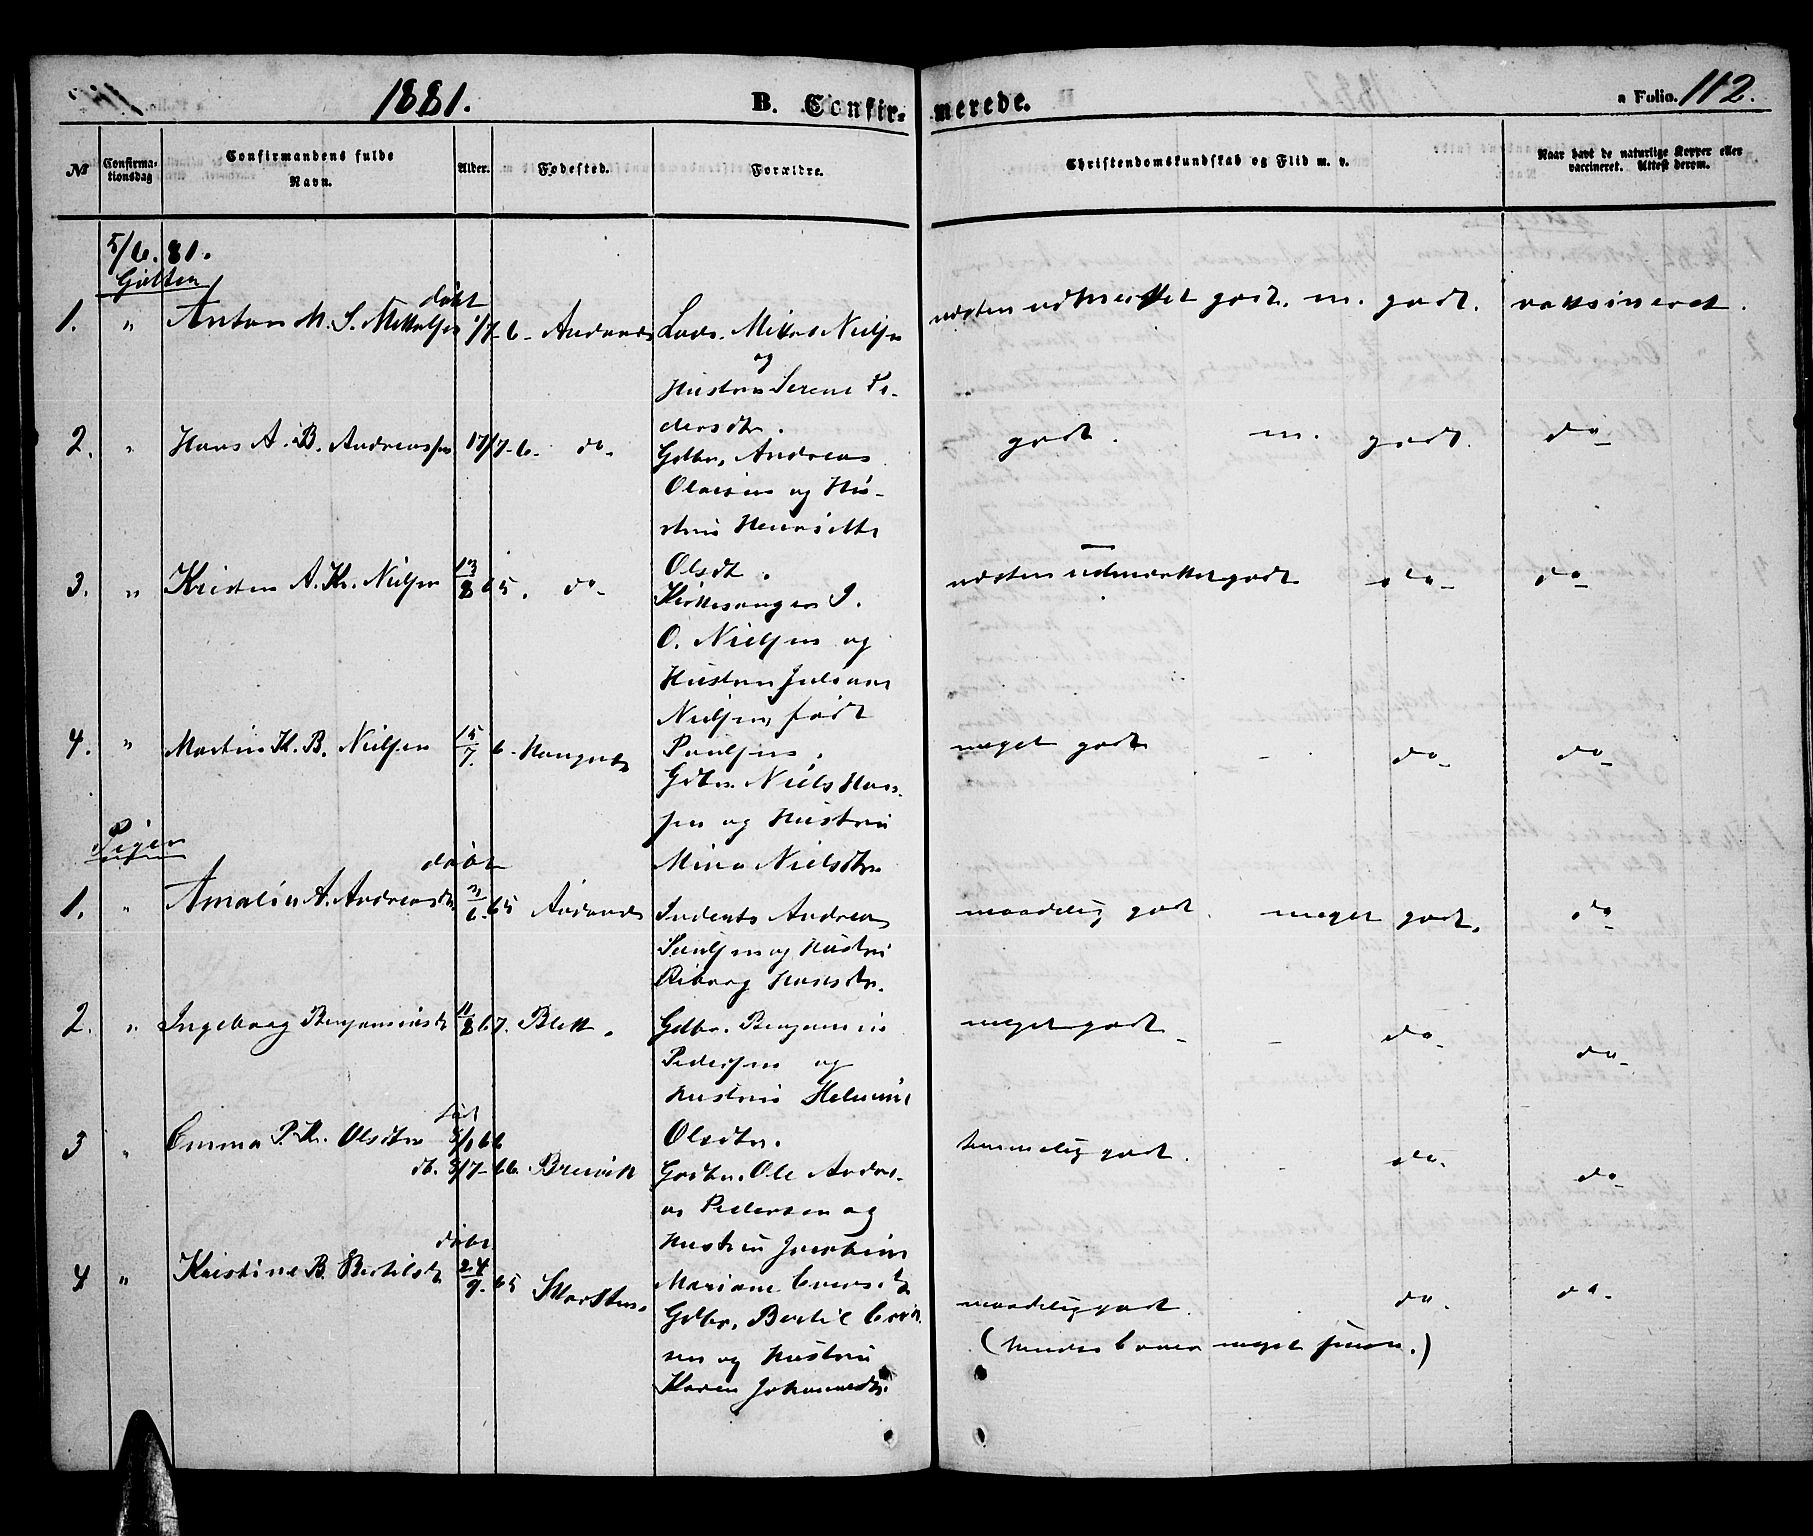 1881.
B. Confir-
merede.
a Folio. 112.
№
Confirma-
tionsdag
Confirmandens fulde
Navn.
Alder.
Fødested.
Forældre.
Christendomskundskab og Flid m. v.
Naar havt de naturlige Kopper eller
vaccineret. Attest derom.
5/6. 81.
Gutter
døbt
1. " Anton M. S. Mikkelsen 1/7-6- Andands Lods. Mikkel Nielsen
og
Hustru Serene Pe-
dersdtr.
næsten udmerket godt. m. godt. vaksineret.
2. " Hans A. B. Andreassen 17/7-6. do- Gdbr. Andreas
Olaisen og Hu-
stru Henriette
Olsdt.
godt. m. godt. do-
3. " Kristen A. Kr. Nielsen 13/8 65. do- Kirkesanger J.
O. Nielsen og
Hustru Juliane
Nielsen, født
Paulsen.
næsten udmerket godt do- do-
4. " Martin K. B. Nielsen 15/7. 6- Haugnes Gdbr. Niels Han-
sen og Hustru
Mina Nielsdtr
meget godt - do- do-
Piger
døbt
1. " Amalia A. Andreasdtr. 3/6. 65 Andands Inderst Andreas
Paulsen og Hustru
Riborg Hansdtr.
maadelig godt. meget godt. do-
2. " Ingeborg Benjaminsdt 11/8 67. Bleik. Gdbr. Benjamin
Pedersen og
Hustru Helmine
Olsdtr.
meget godt - do- do-
født
3 " Emma P. K. Olsdtr 5/1 66
db. 8/7-66 Breivik Gdbr. Ole Andre-
as Pedersen og
Hustru Jacobine
Mariane Eversdt
temmelig godt. - do. do-
døbt.
4 " Kristine B. Bertilsdt 24/9. 65 Skarsten. Gdbr. Bertil Erik
sen og Hustru
Karen Johannesdtr.
maadelig godt. . do. do-
(hendes Evner meget sm.)